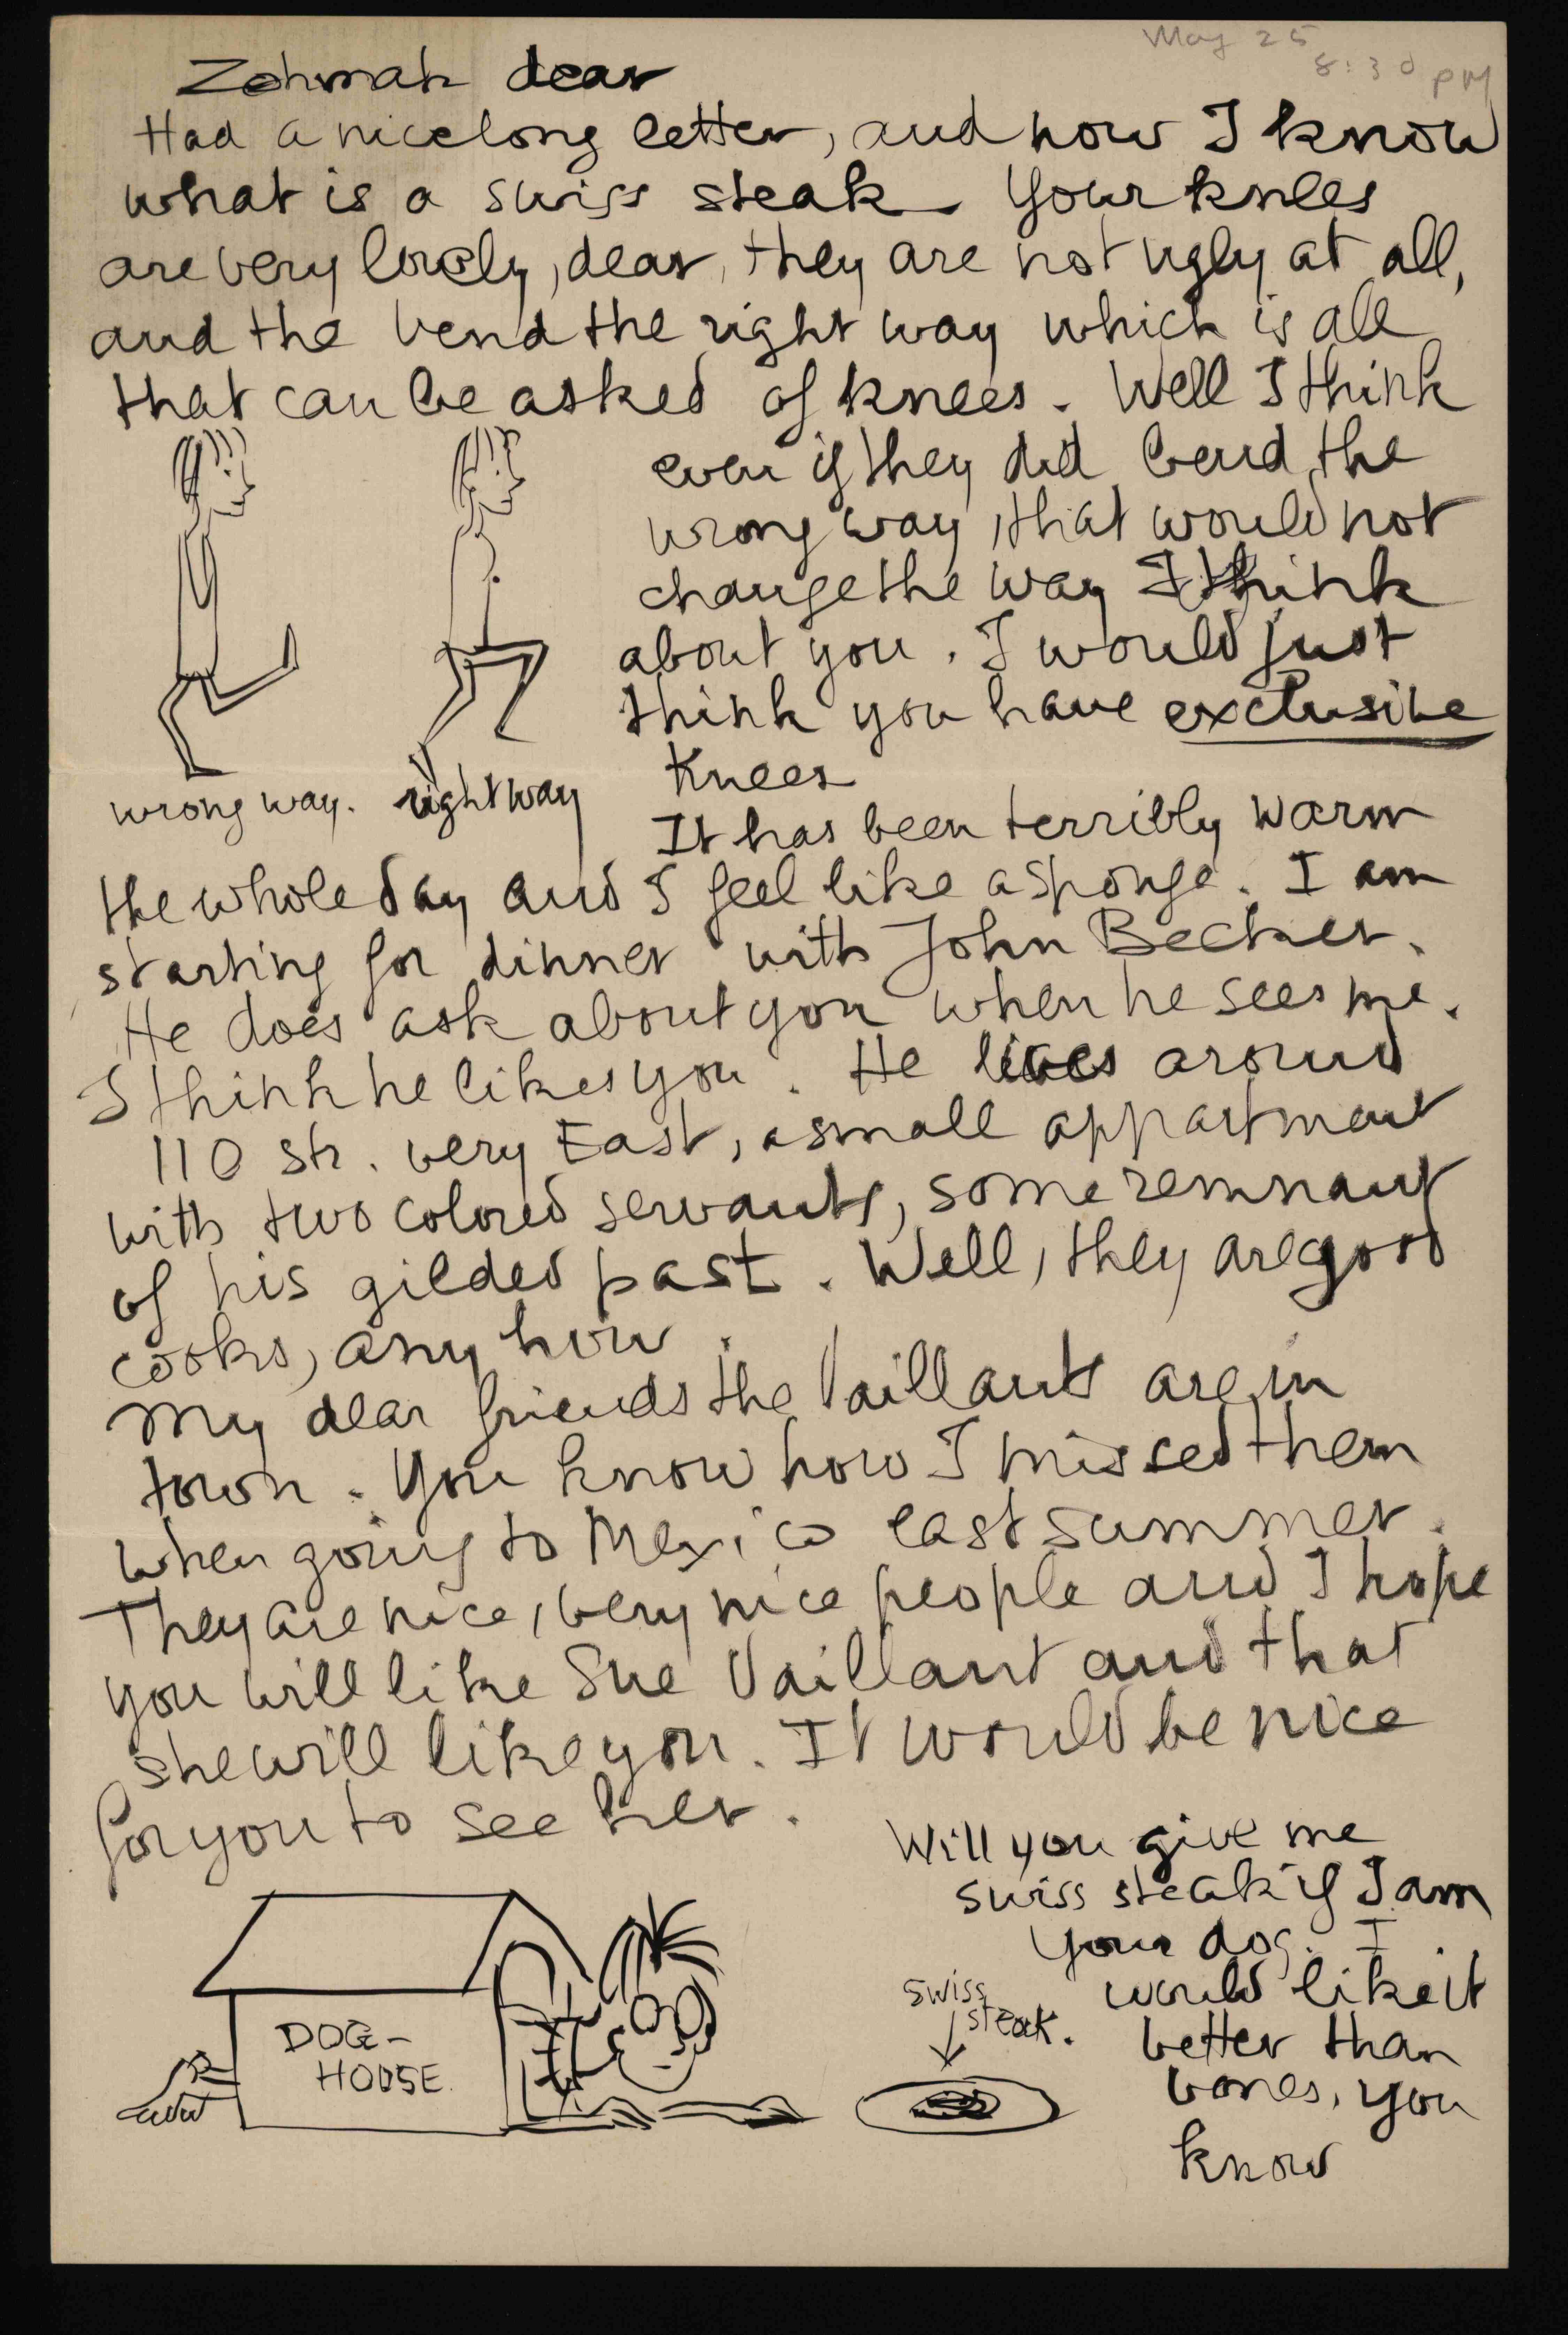 May 25
8:30 pm
Zohmah dear
Had a nice long letter, and now I know
what is a swiss steak. Your knees
are very lovely, dear, they are not ugly at all,
and the bend the right way which is all
that can be asked of knees. Well I think
even if they did bend the
wrong way, that would not
change the way I think
about you. I would just
think you have exclusive
knees
wrong way. right way
It has been terribly warm
the whole day and I feel like a sponge. I am
starting for dinner with John Becker.
He does ask about you when he sees me.
I think he likes you. He lives around
110 str. very East, a small appartment
with two colored servants, some remnant
of his gilded past. Well, they are good
cooks, any how.
My dear friends the Vaillants are in
town. You know how I missed them
when going to Mexico last summer.
They are nice, very nice people and I hope
you will like Sue Vaillant and that
she will like you. It would be nice
for you to see her.
Will you give me
swiss steak if I am
your dog. I
would like it
better than
bones, you
know
swiss
steak.
DOG-
HOUSE.